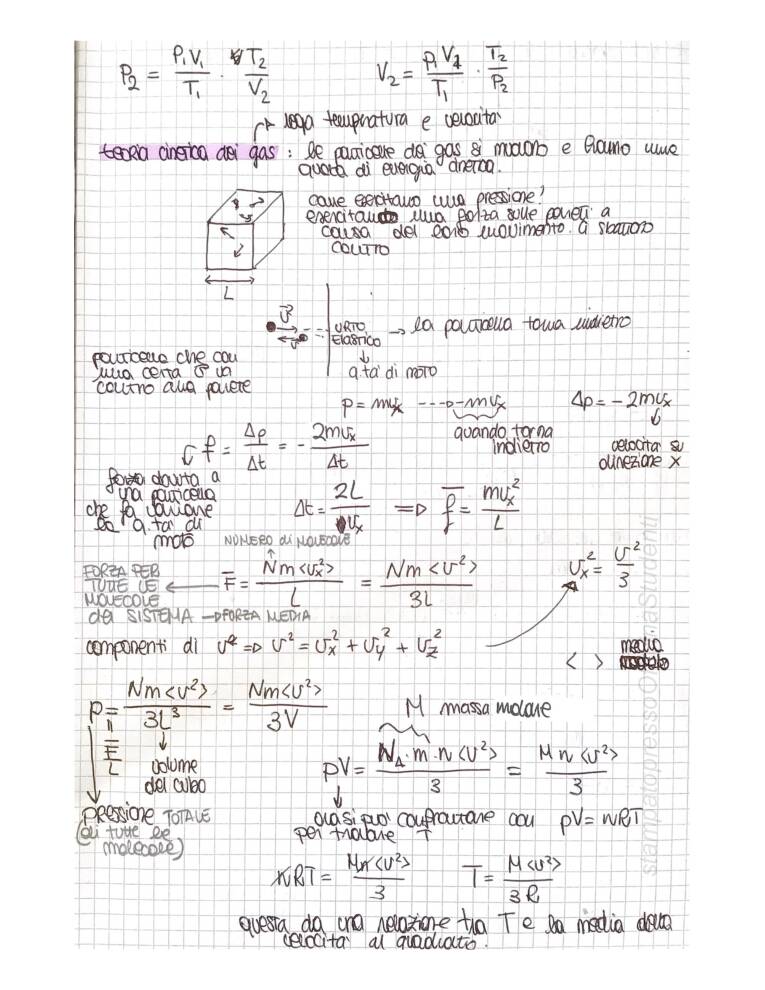 P₂ = P₁V₁/T₁ · T₂/V₂
V₂ = P₁V₁/T₁ · T₂/P₂
lega temperatura e velocità
teoria cinetica dei gas : le particelle dei gas si muovono e hanno una
quota di energia cinetica.
come esercitano una pressione?
esercitando una forza sulle pareti a
causa del loro movimento. Ci sbattono
contro
L
v⃗
URTO
ELASTICO → la particella torna indietro
particella che con
una certa v va
contro alla parete
q.ta' di moto
p = mvₓ ---→ -mvₓ
Δp = -2mvₓ
quando torna
indietro
velocità su
direzione x
f = Δp/Δt = - 2mvₓ/Δt
forza dovuta a
una particella
che fa variare
la q.ta' di
moto
Δt = 2L/vₓ ⇒ f̅ = mvₓ²/L
NUMERO di MOLECOLE
FORZA PER
TUTTE LE
MOLECOLE
del SISTEMA → FORZA MEDIA
F̅ = Nm<vₓ²>/L = Nm<v²>/3L
vₓ² = v²/3
componenti di v² ⇒ v² = vₓ² + v_y² + v_z²
< > media
p = Nm<v²>/3L³ = Nm<v²>/3V
volume
del cubo
PRESSIONE TOTALE
(di tutte le
molecole)
M massa molare
pV = N_A·m·n<v²>/3 = Mn<v²>/3
ora si può confrontare con pV = nRT
per trovare T
nRT = Mn<v²>/3
T = M<v²>/3R
questa da una relazione tra T e la media della
velocità al quadrato.
stampatopressoOfficinaStudenti